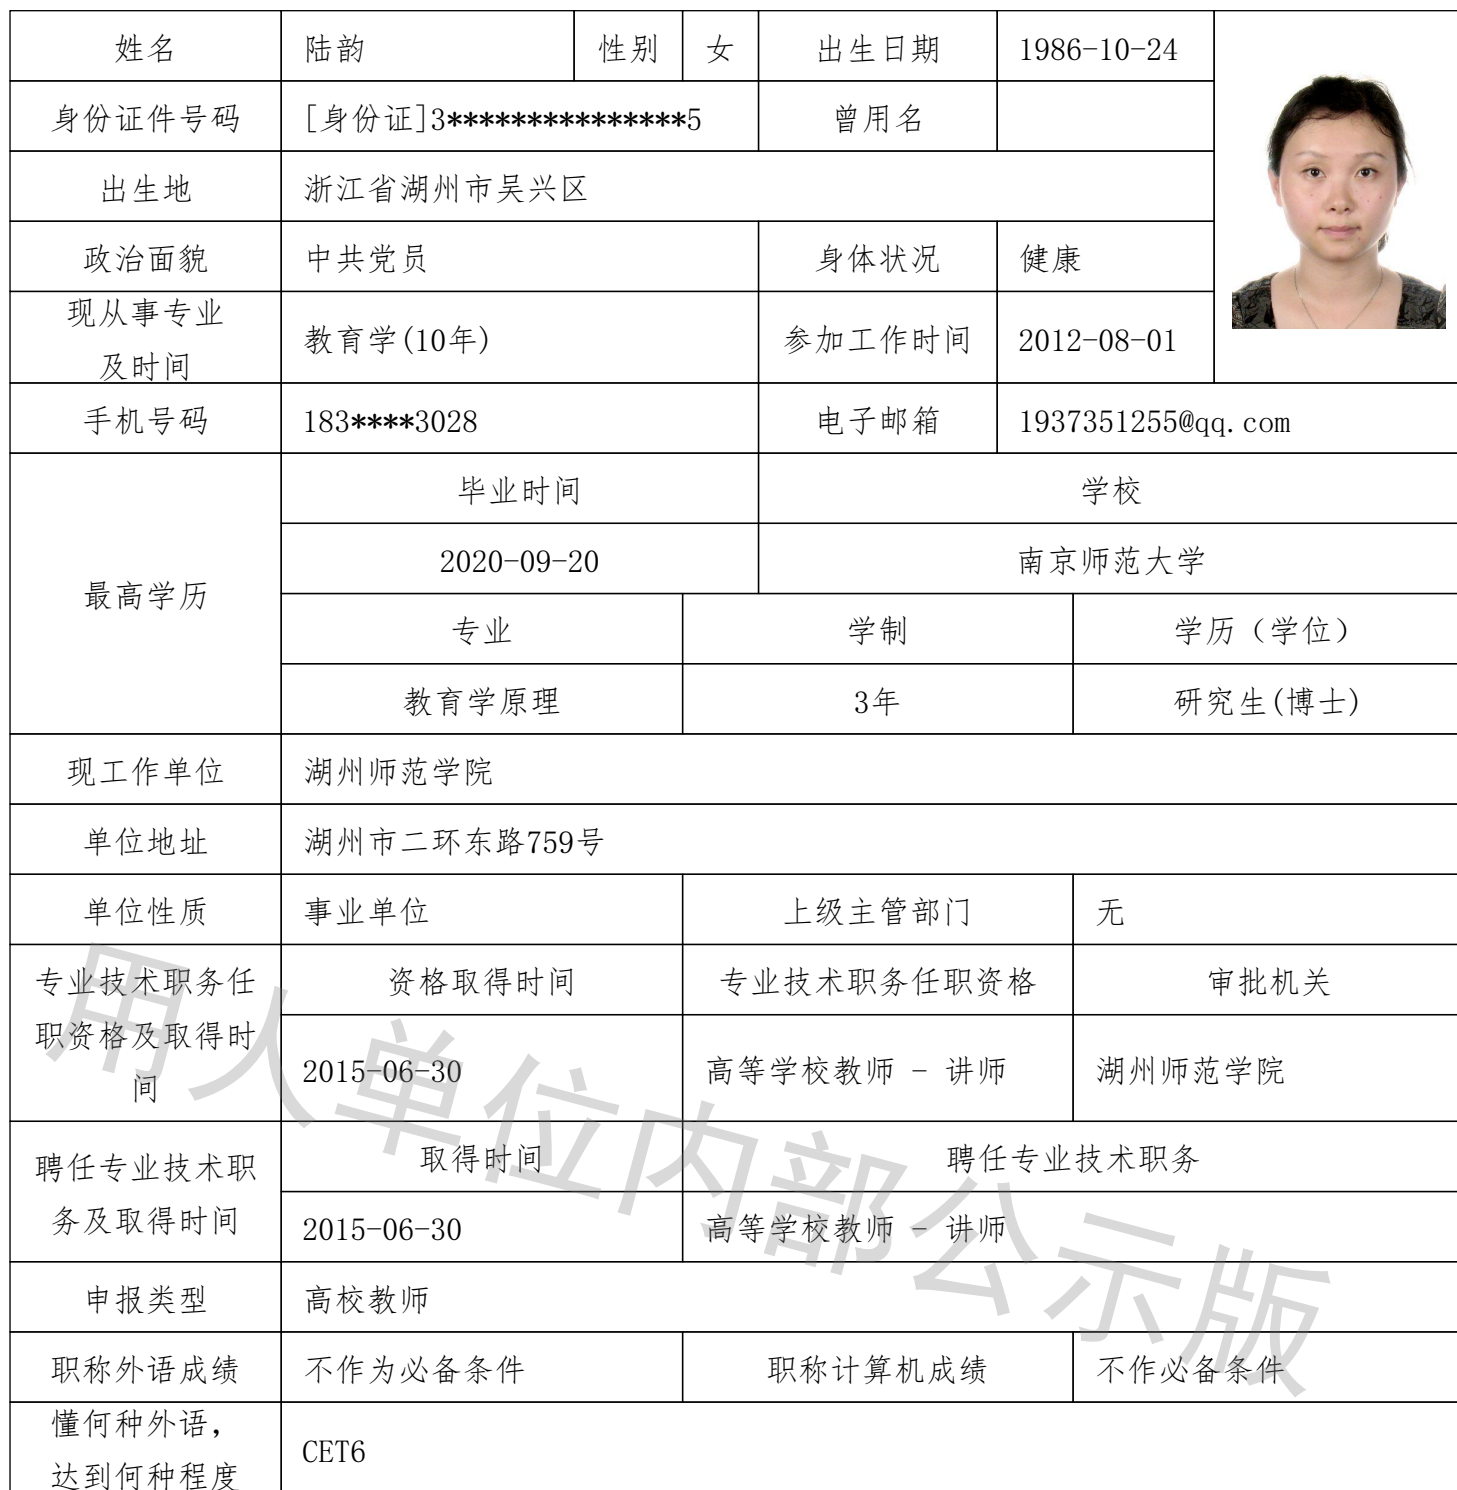 姓名 陆韵 性别 女 出生日期 1986-10-24
身份证件号码 [身份证]3***************5 曾用名
出生地 浙江省湖州市吴兴区
政治面貌 中共党员 身体状况 健康
现从事专业
及时间
教育学(10年) 参加工作时间 2012-08-01
手机号码 183****3028 电子邮箱 1937351255@qq.com
最高学历
毕业时间 学校
2020-09-20 南京师范大学
专业 学制 学历（学位）
教育学原理 3年 研究生(博士)
现工作单位 湖州师范学院
单位地址 湖州市二环东路759号
单位性质 事业单位 上级主管部门 无
专业技术职务任
职资格及取得时
间
资格取得时间 专业技术职务任职资格 审批机关
2015-06-30 高等学校教师 - 讲师 湖州师范学院
聘任专业技术职
务及取得时间
取得时间 聘任专业技术职务
2015-06-30 高等学校教师 - 讲师
申报类型 高校教师
职称外语成绩 不作为必备条件 职称计算机成绩 不作必备条件
懂何种外语，
达到何种程度
CET6
用人单位内部公示版